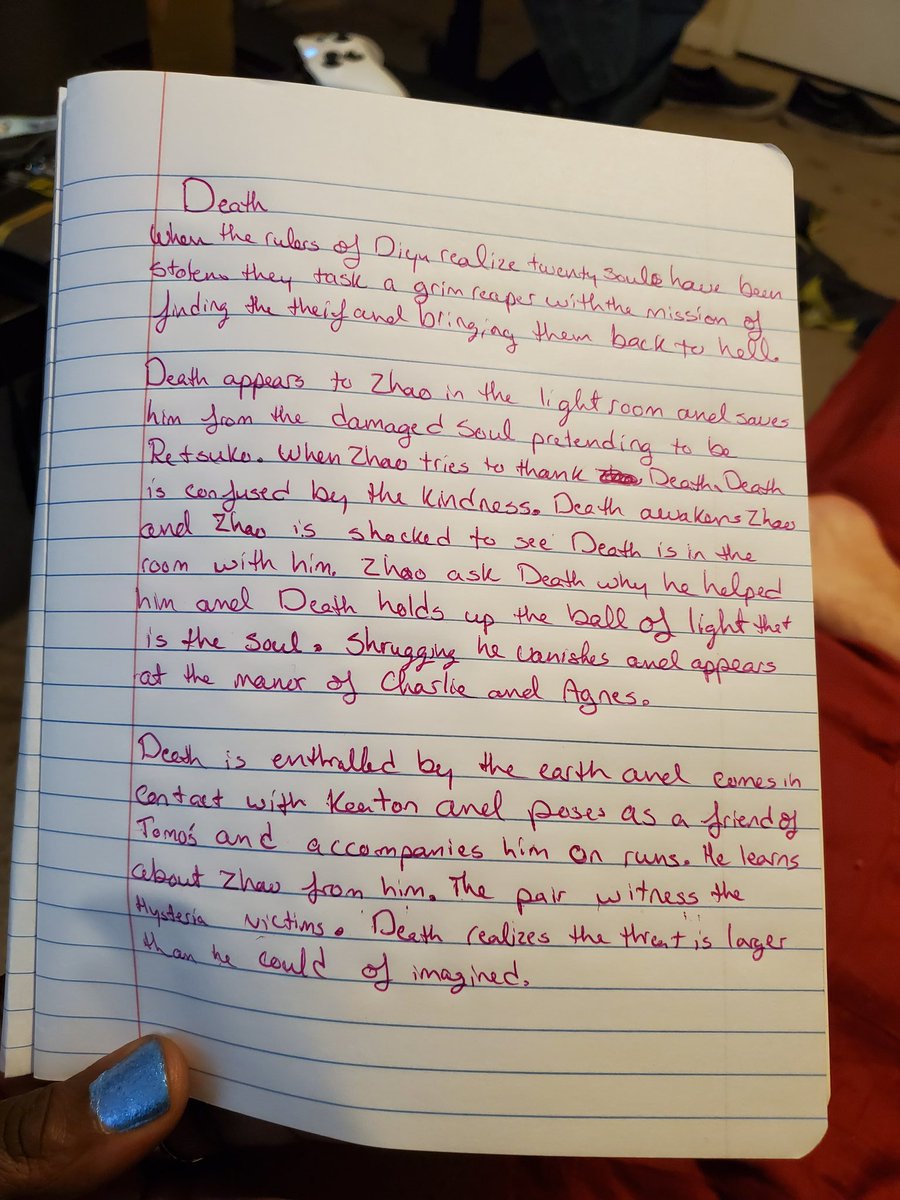 Death
When the rulers of Diyu realize twenty souls have been
stolen they task a grim reaper with the mission of
finding the theif and bringing them back to hell.
Death appears to Zhao in the light room and saves
him from the damaged soul pretending to be
Retsuko. When Zhao tries to thank Death, Death
is confused by the kindness. Death awakens Zhao
and Zhao is shocked to see Death is in the
room with him. Zhao ask Death why he helped
him and Death holds up the ball of light that
is the soul. Shrugging he vanishes and appears
at the maner of Charlie and Agnes.
Death is enthralled by the earth and comes in
contact with Keaton and poses as a friend of
Tomo's and accompanies him on runs. He learns
about Zhao from him. The pair witness the
Hysteria victims. Death realizes the threat is larger
than he could of imagined.